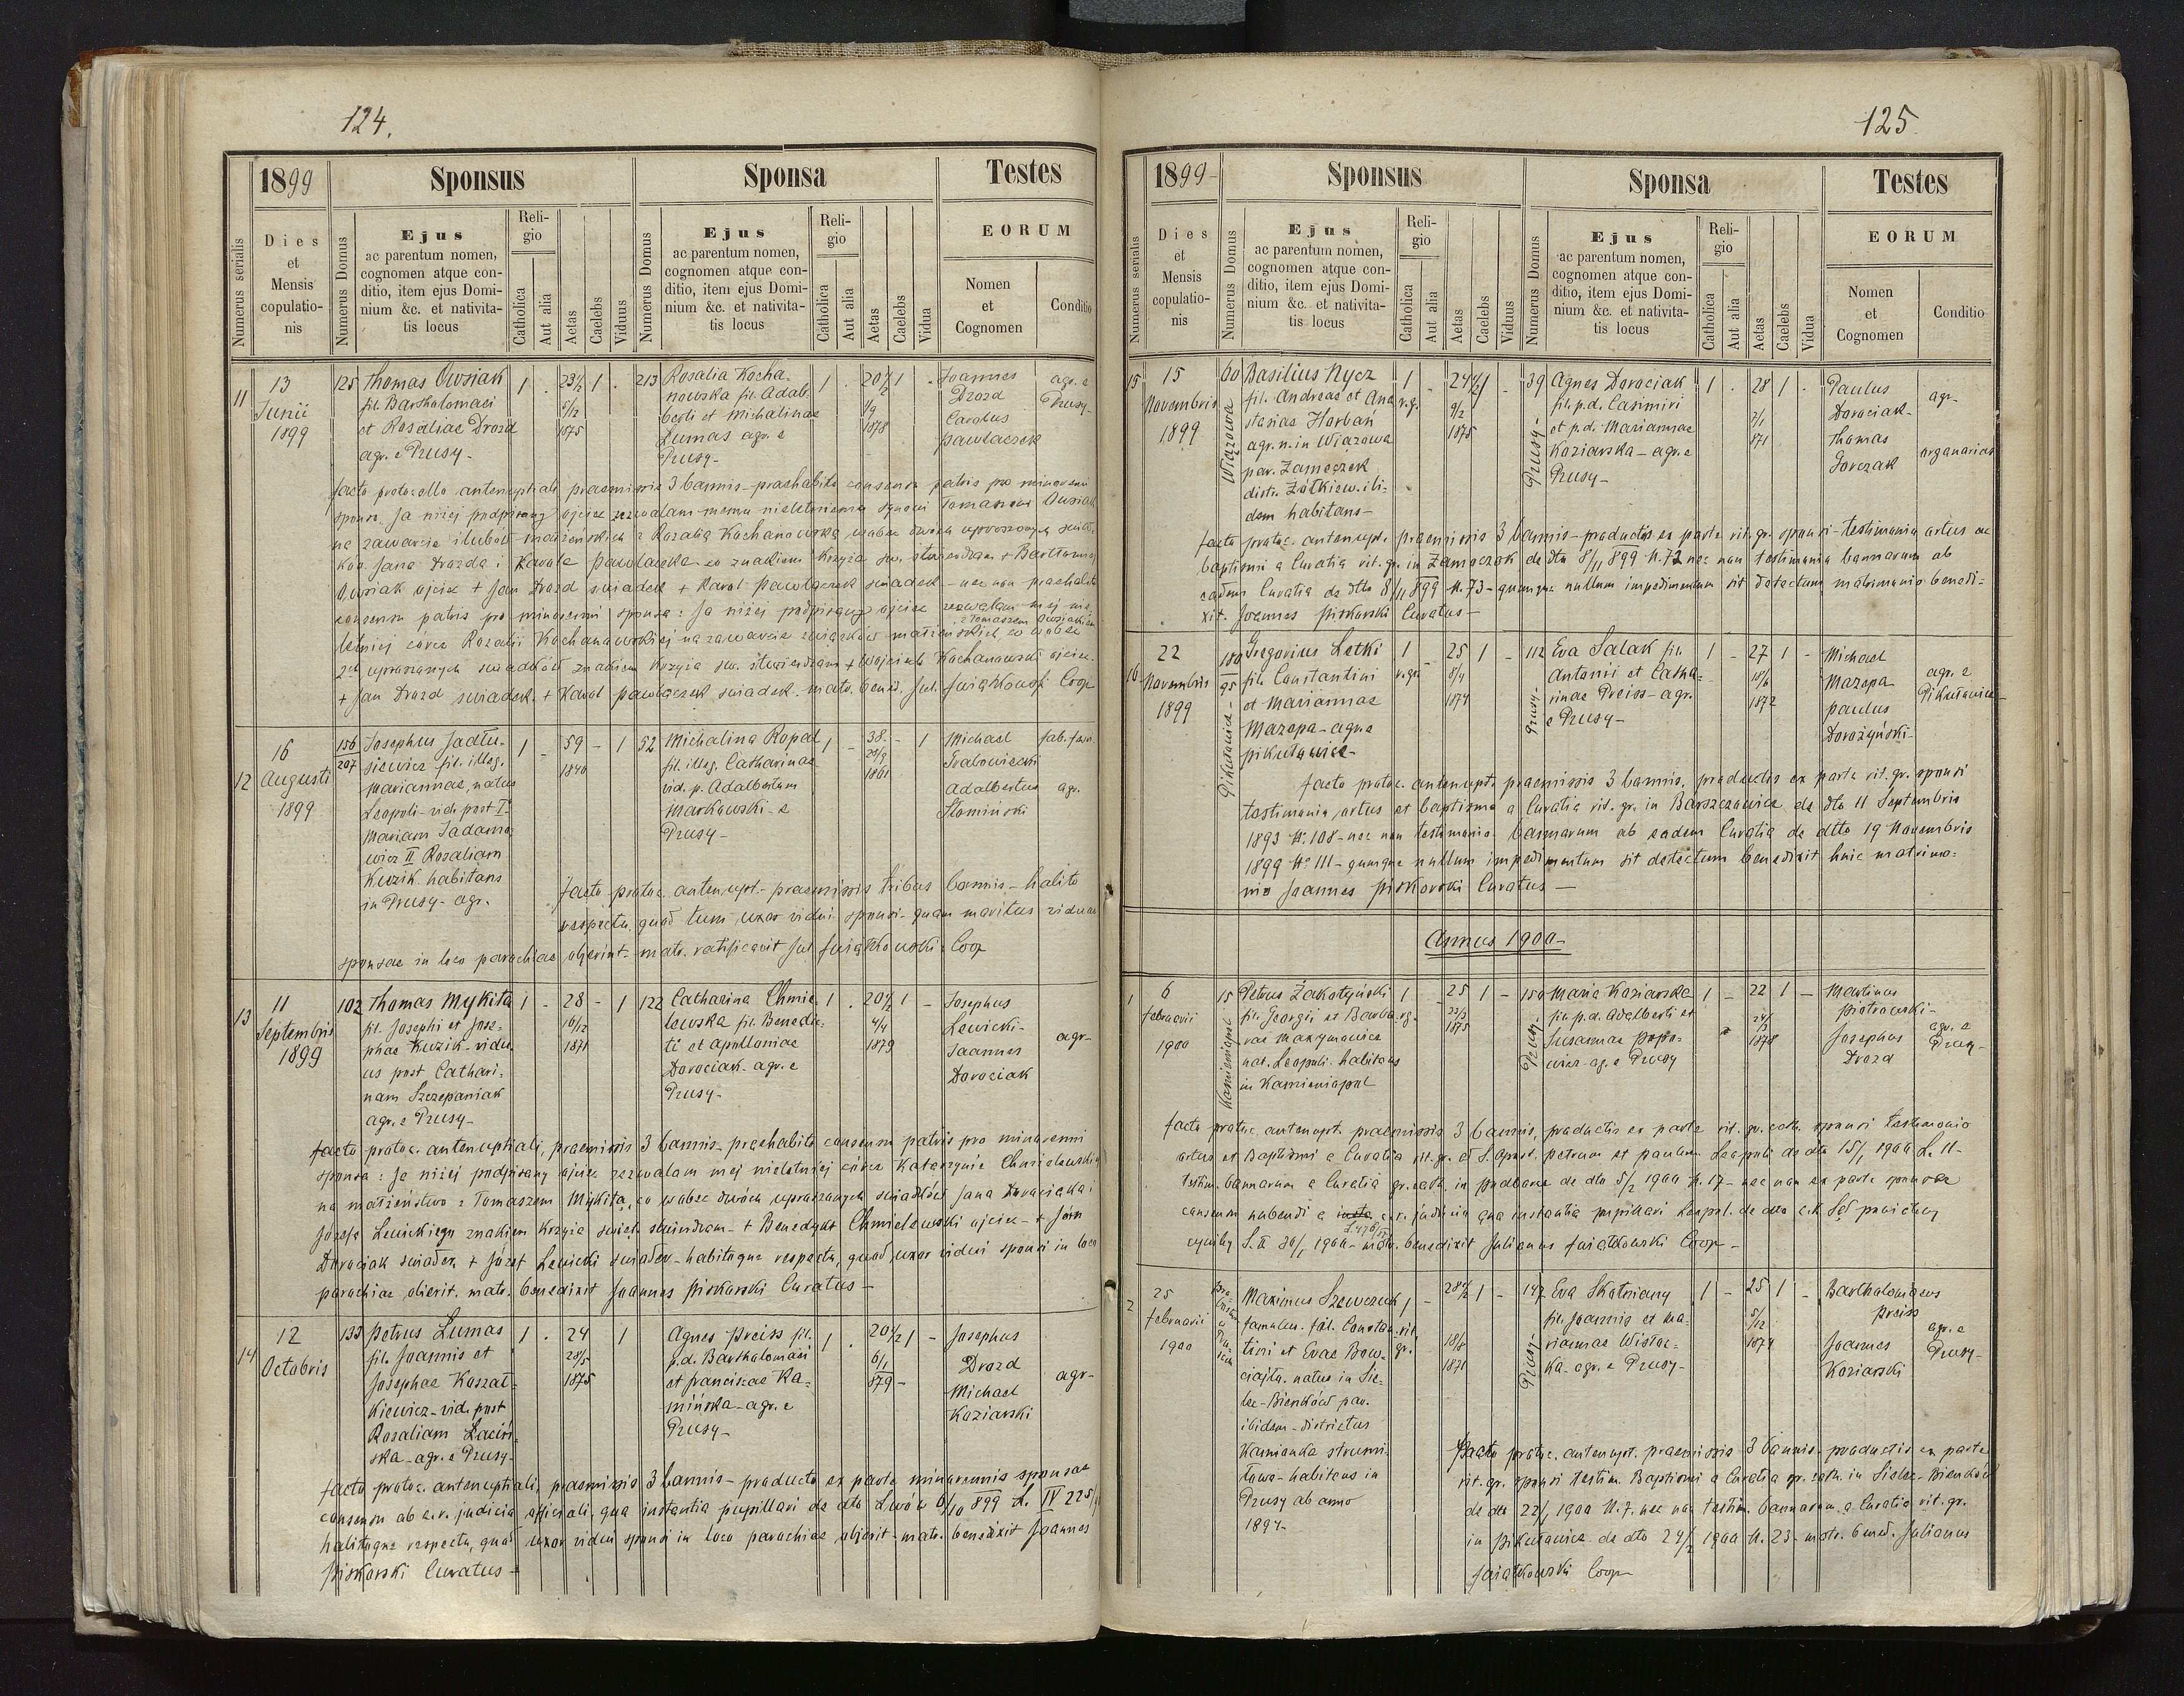 124.
1899
Sponsus
Sponsa
Testes
Numerus serialis
Dies
et
Mensis
copulatio-
nis
Numerus Domus
Ejus
ac parentum nomen,
cognomen atque con-
ditio, item ejus Domi-
nium &c. et nativita-
tis locus
Reli-
gio
Catholica
Aut alia
Aetas
Caelebs
Viduus
Numerus Domus
Ejus
ac parentum nomen,
cognomen atque con-
ditio, item ejus Domi-
nium &c. et nativita-
tis locus
Reli-
gio
Catholica
Aut alia
Aetas
Caelebs
Vidua
EORUM
Nomen
et
Cognomen
Conditio
11
13
Junii
1899
125
Thomas Owsiak
fil. Bartholomaei
et Rosaliae Drozd
agr. e Prusy-
1 . 23½ 1 .
5/12
1875
213
Rosalia Kocha-
nowska fil. Adal-
berti et Michalinae
Lumas agr. e
Prusy-
1 . 20½ 1 .
1/9
1878
Joannes
Drozd
Carolus
Pawlaczek
agr. e
Prusy-
facto protocollo antenuptiali praemissis 3 bannis - praehabito consensu patris pro minorenni
sponso. Ja niżej podpisany ojciec zezwalam memu nieletniemu synowi Tomaszowi Owsiak
na zawarcie ślubów małżeńskich z Rozalią Kochanowską wobec dwóch uproszonych świad-
ków Jana Drozda i Karola Pawlaczka co znakiem krzyża św. stwierdzam + Bartłomiej
Owsiak ojciec + Jan Drozd świadek + Karol Pawlaczek świadek - nec non praehabito
consensu patris pro minorenni sponsa: Ja niżej podpisany ojciec zezwalam mej nie-
z Tomaszem Owsiakiem
letniej córce Rozalii Kochanowskiej na zawarcie związków małżeńskich, co wobec
2ch uproszonych świadków znakiem krzyża św. stwierdzam + Wojciech Kochanowski ojciec.
+ Jan Drozd świadek + Karol Pawlaczek świadek. matr. bened. Jul. Świątkowski Coop
12
16
Augusti
1899
156
207
Josephus Jadłu-
siewicz fil. illeg.
Mariannae, natus
Leopoli - vid. post I.
Mariam Sadamo-
wicz II Rosaliam
Kuzik habitans
in Prusy - agr.
1 - 59 - 1
1840
52
Michalina Kopal
fil. illeg. Catharinae
vid. p. Adalbertum
Markowski - e
Prusy-
1 - 38 - - 1
29/9
1861
Michael
Grabowiecki
Adalbertus
Słomiński
agr.
facto protoc. antenupt. - praemissis tribus bannis - habito
respectu, quod tum uxor vidui sponsi - quam maritus viduae
sponsae in loco parochiae obierint - matr. ratificavit Jul. Świątkowski Coop
13
11
Septembris
1899
102
Thomas Mykita
fil. Josephi et Jose-
phae Kuzik - vidu-
us post Cathari-
nam Szczepaniak
agr. e Prusy-
1 - 28 - 1
16/12
1871
122
Catharina Chmie-
lewska fil. Benedic-
ti et Apolloniae
Dorociak - agr. e
Prusy-
1 . 20½ 1 -
4/4
1879
Josephus
Lewicki-
Joannes
Dorociak
agr-
facto protoc. antenuptiali, praemissis 3 bannis - praehabito consensu patris pro minorenni
sponsa: Ja niżej podpisany ojciec zezwalam mej nieletniej córce Katarzynie Chmielewskiej
na małżeństwo z Tomaszem Mykitą, co wobec dwóch uproszonych świadków Jana Dorociaka i
Józefa Lewickiego znakiem krzyża święt. stwierdzam - + Benedykt Chmielewski ojciec - + Jan
Dorociak świadek + Józef Lewicki świadek - habitoque respectu, quod uxor vidui sponsi in loco
parochiae obierit. matr. benedixit Joannes Piskorski Curatus -
14
12
Octobris
133
Petrus Lumas
fil. Joannis et
Josephae Koszał-
kiewicz - vid. post
Rosaliam Łaciń-
ska - agr. e Prusy-
1 . 24 1
28/5
1875
Agnes Preiss fil.
p.d. Bartholomaei
et Franciscae Ka-
mińska - agr. e
Prusy-
1 . 20½ 1 -
6/1
879-
Josephus
Drozd
Michael
Koziarski
agr-
facto protoc. antenuptiali, praemissis 3 bannis - producto ex parte minorennis sponsae
consensu ab c.r. judicio officiali, qua instantia pupillari de dto Lwów 6/10 899 L. IV 225/
habitoque respectu, quod uxor vidui sponsi in loco parochiae obierit - matr. benedixit Joannes
Piskorski Curatus -
125
1899-
Sponsus
Sponsa
Testes
Numerus serialis
Dies
et
Mensis
copulatio-
nis
Numerus Domus
Ejus
ac parentum nomen,
cognomen atque con-
ditio, item ejus Domi-
nium &c. et nativita-
tis locus
Reli-
gio
Catholica
Aut alia
Aetas
Caelebs
Viduus
Numerus Domus
Ejus
ac parentum nomen,
cognomen atque con-
ditio, item ejus Domi-
nium &c. et nativita-
tis locus
Reli-
gio
Catholica
Aut alia
Aetas
Caelebs
Vidua
EORUM
Nomen
et
Cognomen
Conditio
15
15
Novembris
1899
60
Wiązowa
Basilius Nycz
fil. Andreae et Ana-
stasiae Horbań
agr. n. in Wiązowa
par. Zameczek
distr. Żółkiew. ibi-
dem habitans-
1 r.g. - 24½ 1 -
9/2
1875
39
Prusy-
Agnes Dorociak
fil. p.d. Casimiri
et p.d. Mariannae
Koziarska - agr. e
Prusy-
1 . 28 1 .
7/1
871
Paulus
Dorociak-
Thomas
Gorczak
agr-
organarius
facto protoc. antenupt. praemissis 3 bannis - productis ex parte rit. gr. sponsi - testimonio ortus ac
baptismi a Curatia rit. gr. in Zameczek de dto 8/11 899 N. 72 nec non testimonio bannorum ab
eadem Curatia de dto 8/11 899 N. 73 - quumque nullum impedimentum sit detectum matrimonio benedi-
xit. Joannes Piskorski Curatus -
16
22
Novembris
1899
180
95
Pikułowice-
Gregorius Letki
fil. Constantini
et Mariannae
Mazepa - agr. e
Pikułowice-
1 r.gr. - 25 1 -
8/4
1874
112
Prusy-
Eva Sałak fil.
Antonii et Catha-
rinae Preiss - agr.
e Prusy-
1 - 27 1 -
18/6
1872
Michael
Mazepa
Paulus
Dorożyński-
agr. e
Pikułowice-
facto protoc. antenupt. praemissis 3 bannis, productis ex parte rit. gr. sponsi
testimonio ortus et baptismo a Curatia rit. gr. in Barszczowice de dto 11 Septembris
1893 N. 108 - nec non testimonio bannorum ab eadem Curatia de dtto 19 Novembris
1899 N° 111 - quumque nullum impedimentum sit detectum benedixit huic matrimo-
nio Joannes Piskorski Curatus -
Annus 1900-
1
6
Februarii
1900
15
Kamieniopol
Petrus Zakotyński
fil. Georgii et Barba-
rae Maxymowicz
nat. Leopoli. habitans
in Kamieniopol
1 rg. - 25 1 -
22/3
1875
150
Prusy-
Maria Koziarska
fil. p.d. Adalberti et
Susannae Popo-
wicz - ag. e Prusy
1 - 22 1 -
24/3
1878
Martinus
Piotrowski-
Josephus
Drozd
agr. e
Prusy-
facto protoc. antenupt. praemissis 3 bannis, productis ex parte rit. gr. cath. sponsi testimonio
ortus et Baptismi a Curatia rit. gr. ad S. Apost. Petrum et Paulum Leopoli de dto 15/1 1900 L. 11-
testim. bannorum a Curatia gr. cath. in Podborce de dto 5/2 1900 N. 17 - nec non ex parte sponsae
consensum nubendi a c.r. judicio qua instantia pupillari Leopol. de dto c.k. Sąd powiatowy
cywilny S. II 30/1 1900 - matr. benedixit Julianus Świątkowski Coop -
2
25
Februarii
1900
Maximus Szewczuk
famulus. fil. Constan-
tini et Evae Bow-
ciajta. natus in Sie-
lec-Bieńków par.
ibidem - districtus
Kamionka strumi-
łowa - habitans in
Prusy ab anno
1894-
1 rit. gr. - 28½ 1 -
18/8
1871
147
Prusy-
Eva Skotniany
fil. Joannis et Ma-
riannae Wisłoc-
ka - agr. e Prusy-
1 - 25 1 -
5/12
1874
Bartholomaeus
Preiss
Joannes
Koziarski
agr. e
Prusy-
Facto protoc. antenupt. praemissis 3 bannis - productis ex parte
rit. gr. sponsi testim. Baptismi a Curatia gr. cath. in Sielec-Bieńków
de dto 22/1 1900 N. 7. nec non testim. bannorum a Curatia rit. gr.
in Pikułowice de dto 24/2 1900 N. 23 - matr. bened. Julianus
Świątkowski Coop-